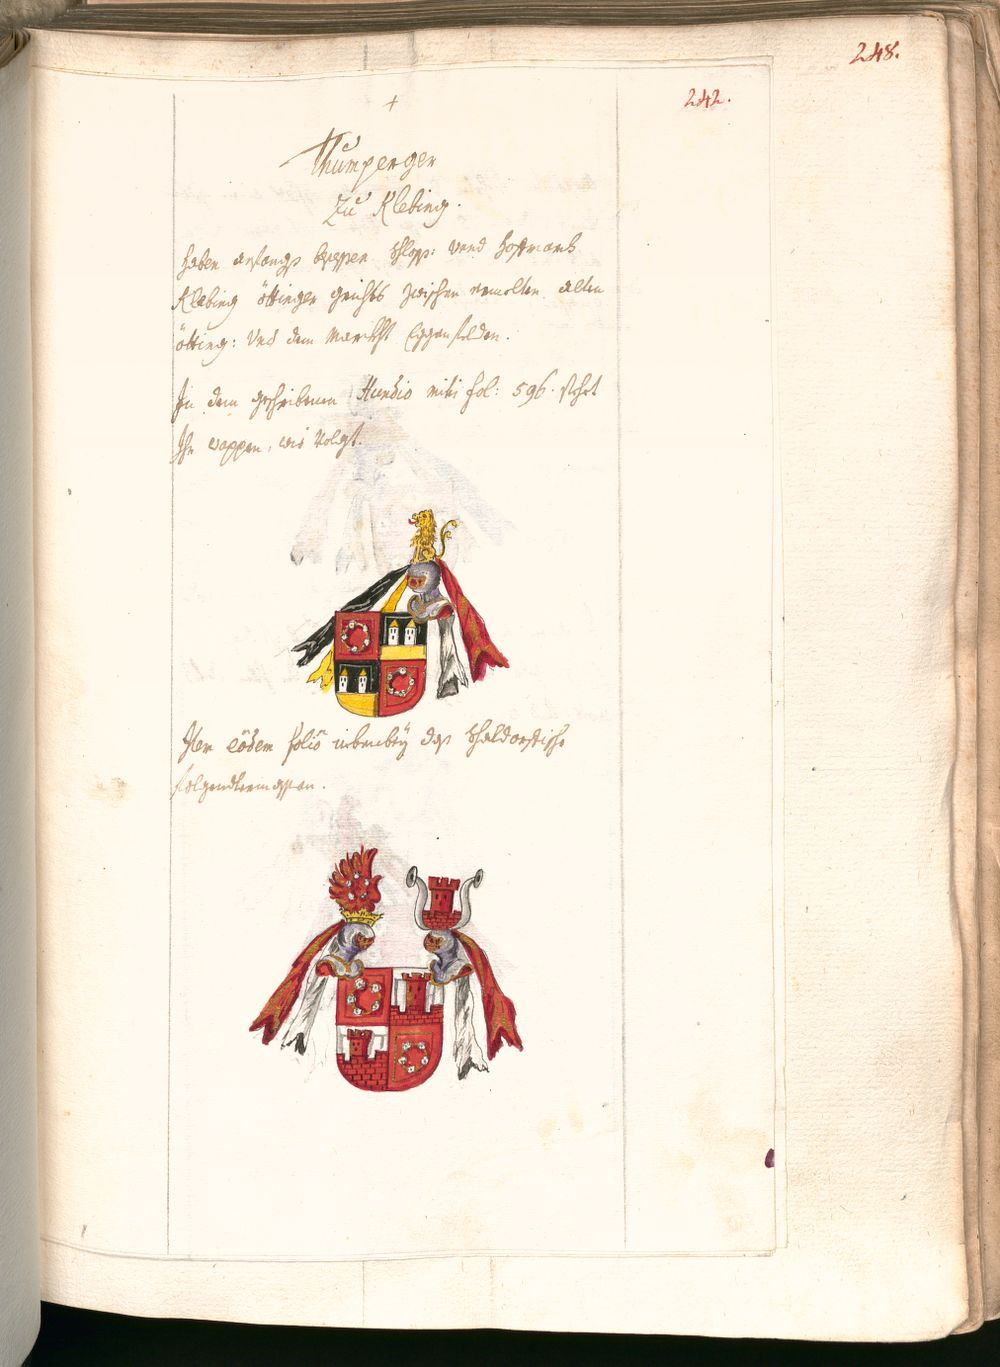 248.
242.
+
Thumperger
Zu Klebing.
haben anfangs Schloss: vnd Hofmarch
Klebing öttinger grichts zwischen alten
ötting: Vnd dem Marckht Eggenfelden.
In dem geschribenen Hundio mihi fol: 596. steht
Ihr wappen, wie Volgt.
Item eödem folio nebenbeÿ das
folgendtermassen.